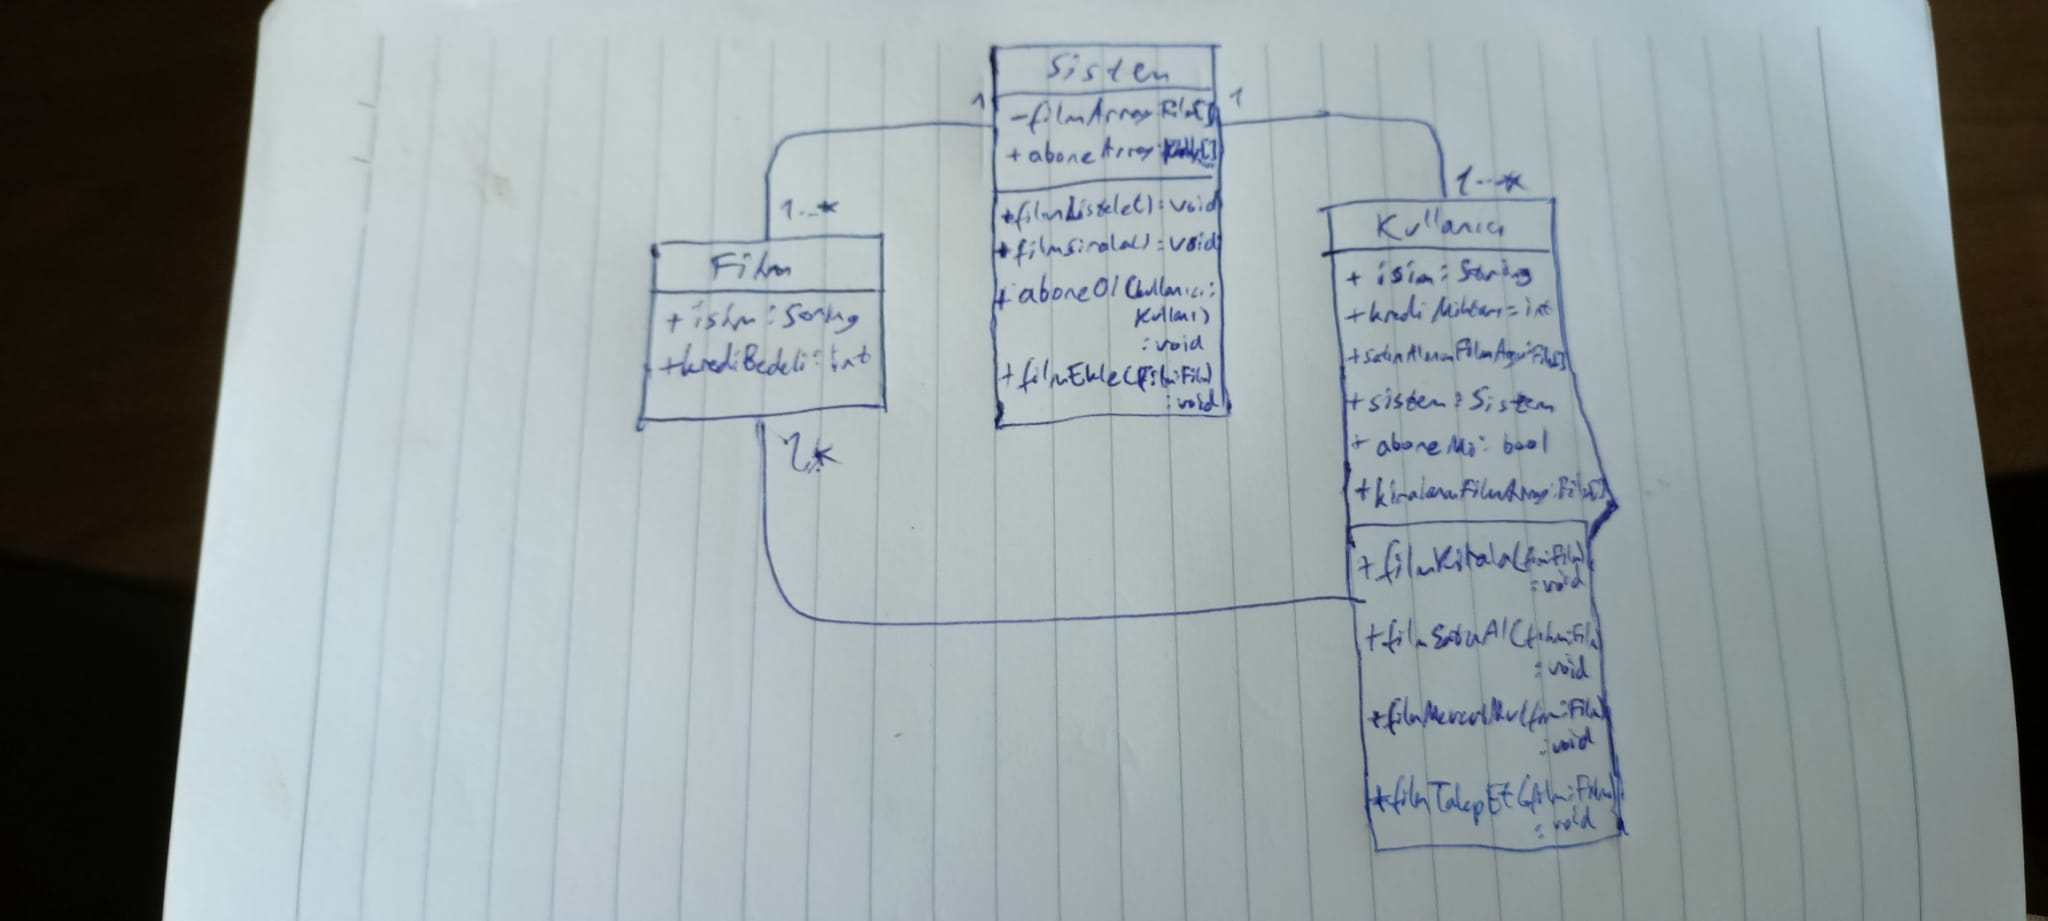 Sistem
1
1
- filmArray: Film[]
+ aboneArray:
+ filmListele(): void
+ filmSirala(): void
+ aboneOl(kullanici:
Kullanici)
: void
+ filmEkle(film:Film)
: void
1..*
Film
+ isim: String
+ krediBedeli: int
1...*
Kullanıcı
+ isim: String
+ krediMiktarı: int
+ satınAlınanFilmArray:Film[]
+ sistem: Sistem
+ aboneMi: bool
+ kiralananFilmArray:Film[]
+ filmKirala(film:Film)
: void
+ filmSatınAl(film:Film)
: void
+ filmMevcutMu(film:Film)
: void
+ filmTalepEt(film:Film)
: void